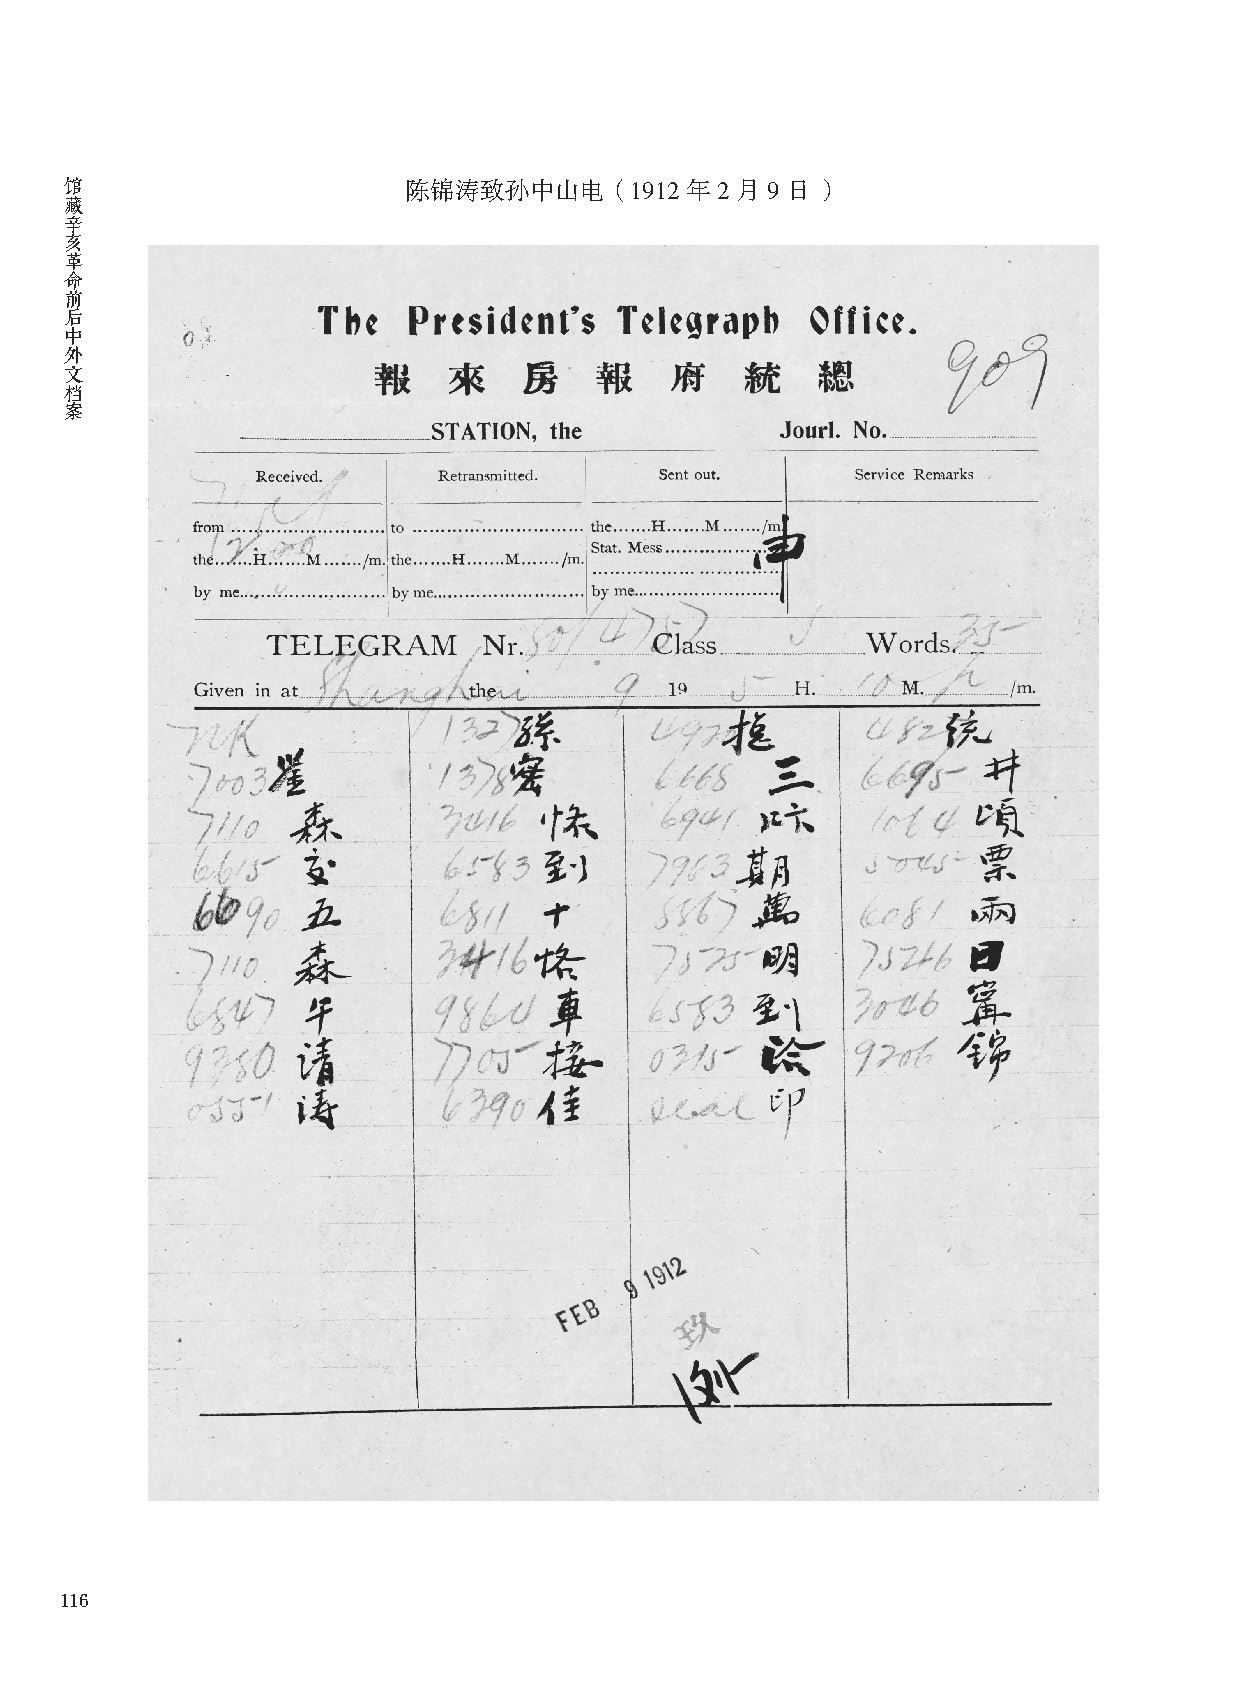 馆藏辛亥革命前后中外文档案
陈锦涛致孙中山电（1912年2月9日 ）
The President's Telegraph Office.
報 來 房 報 府 統 總
909
STATION, the Jourl. No.
Received. Retransmitted. Sent out. Service Remarks
from to the.......H.......M......./m.
Stat. Mess
the.......H.......M......./m. the.......H.......M......./m.
by me by me by me
TELEGRAM Nr. Class Words. 35
Given in at Shanghai the 9 19 5 H. 10 M. /m.
1327 孫 統
7003 1378 密 6668 三 6695 井
7110 森 3416 恪 6941 頃
6615 交 6583 到 7963 期 5045 票
6690 五 6811 十 5567 萬 6081 兩
7110 森 3416 恪 7525 明 7526 日
6847 午 9864 車 6583 到 3046 甯
9380 请 7705 接 0315 洽 9206 錦
0551 涛 6390 佳 seal 印
FEB 9 1912
116